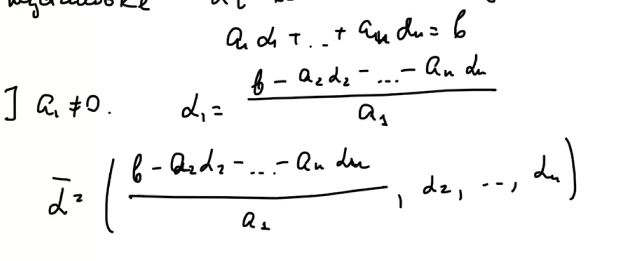 a₁ α₁ + ... + aₙ αₙ = b
] a₁ ≠ 0. α₁ = (b - a₂α₂ - ... - aₙ αₙ) / a₁
ᾱ = ( (b - a₂α₂ - ... - aₙ αₙ) / a₁ , α₂, ..., αₙ )